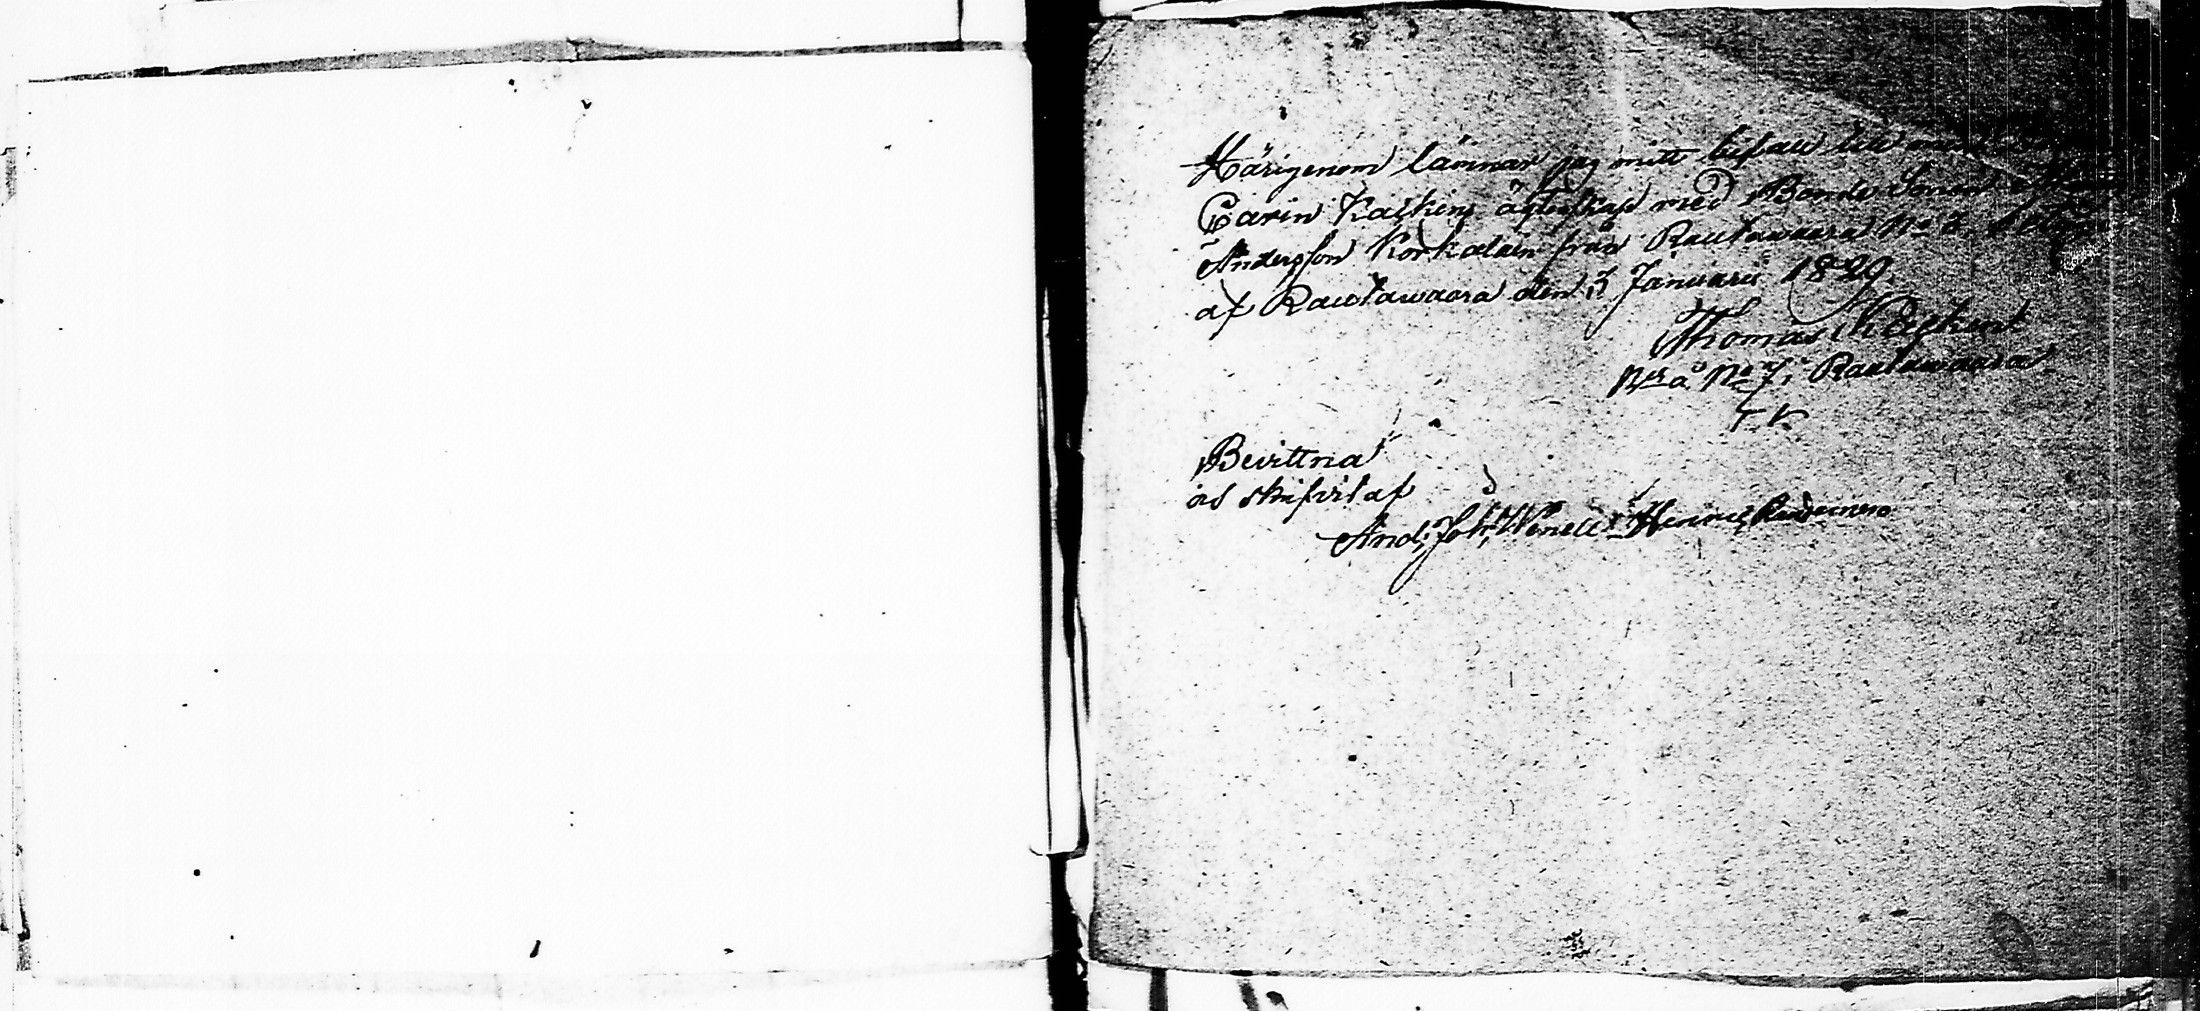 Härigenom lämnar jag mitt bifall till min
Carin Kaskens ägtenskap med Bonde Sonen
Andersson Korkalain från Rautawaara No 3
af Rautawaara den 3 Januarii 1829.
Thomas Kaskein
No 7, Rautawaara
Bevittna
är skrifvit af
And: Joh: Wenell Henric